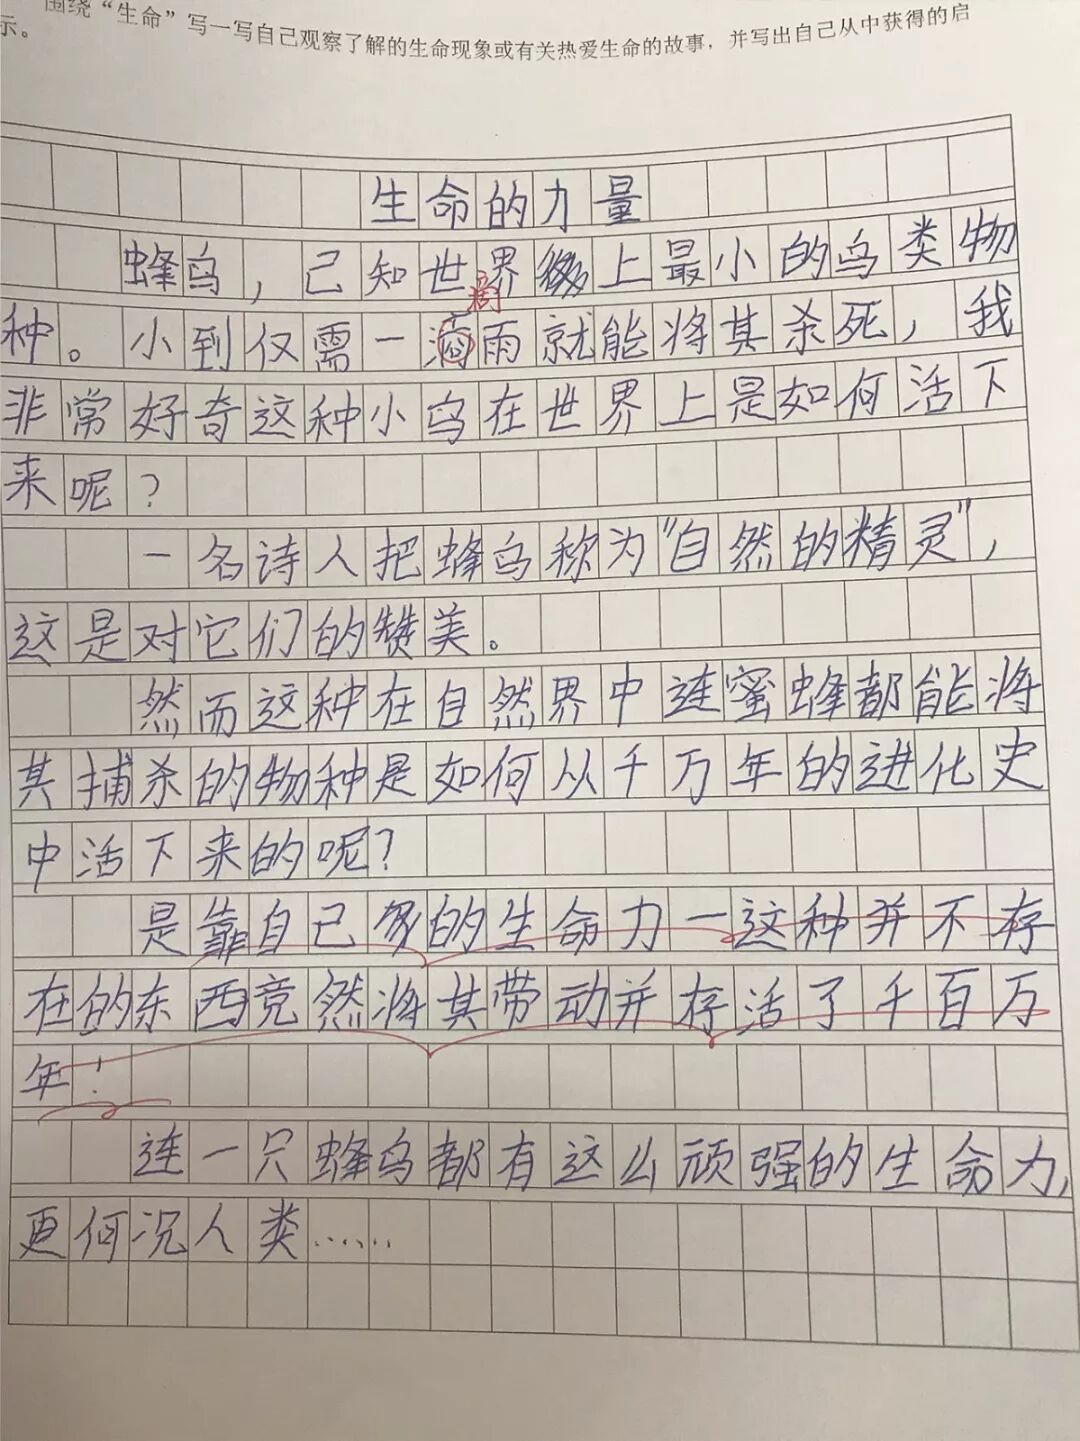 围绕“生命”写一写自己观察了解的生命现象或有关热爱生命的故事，并写出自己从中获得的启
示。
生命的力量
蜂鸟，已知世界上最小的鸟类物
种。小到仅需一滴雨就能将其杀死，我
非常好奇这种小鸟在世界上是如何活下
来呢？
一名诗人把蜂鸟称为“自然的精灵”，
这是对它们的赞美。
然而这种在自然界中连蜜蜂都能将
其捕杀的物种是如何从千万年的进化史
中活下来的呢？
是靠自己的生命力—这种并不存
在的东西竟然将其带动并存活了千百万
年！
连一只蜂鸟都有这么顽强的生命力，
更何况人类……